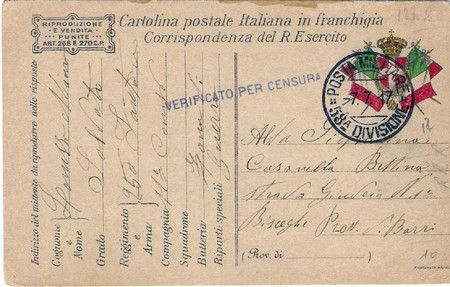 RIPRODUZIONE
E VENDITA
PUNITE
ART. 268 E 270 C.P.
Cartolina postale Italiana in franchigia
Corrispondenza del R. Esercito
VERIFICATO PER CENSURA
POSTA MILITARE
1.1.17
58a DIVISIONE
Indirizzo del mittente da riprodurre nelle risposte
Cognome
e
Nome
Grado Soldato
Reggimento 260
e
Arma
Compagnia 11a
Squadrone
Batteria Zona di
Riparti speciali Guerra
Alla
Casanella Bettina
Strada
Bisceglie Prov. Barri
(Prov. di )
10